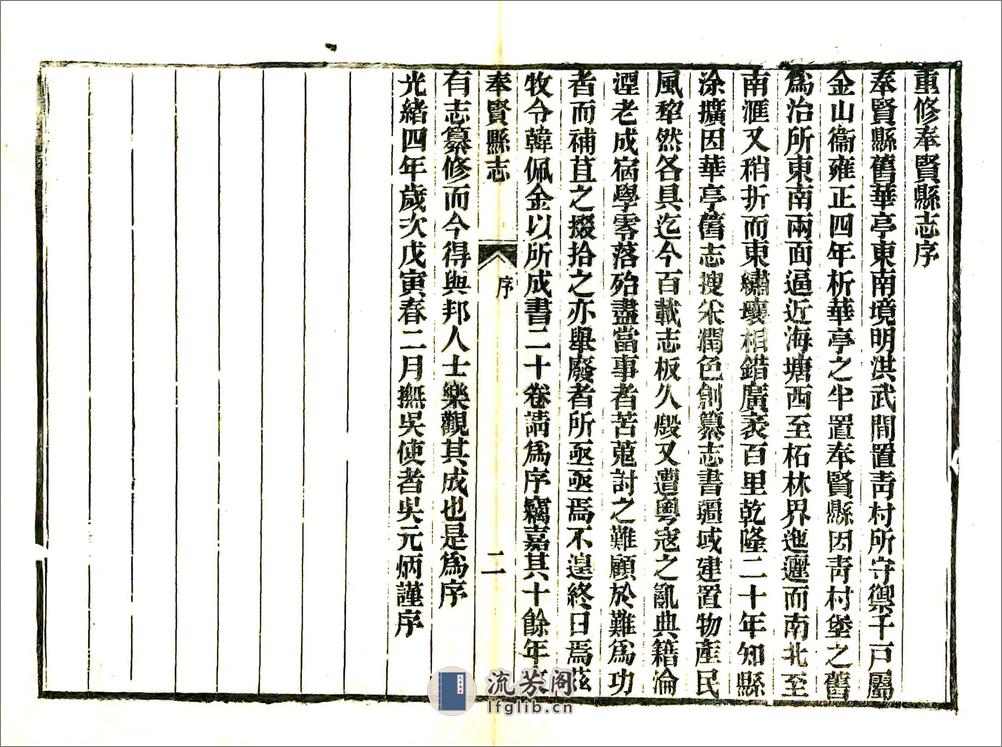 重修奉賢縣志序
奉賢縣舊華亭東南境明洪武間置靑村所守禦千戸屬
金山衞雍正四年析華亭之半置奉賢縣因靑村堡之舊
爲治所東南兩面逼近海塘西至柘林界迤邐而南北至
南滙又稍折而東繡壤相錯廣袤百里乾隆二十年知縣
涂擴因華亭舊志搜采潤色創纂志書疆域建置物產民
風犂然各具迄今百載志板久燬又遭粵寇之亂典籍淪
湮老成宿學零落殆盡當事者苦蒐討之難顧於難爲功
者而補苴之掇拾之亦舉廢者所亟亟焉不遑終日焉茲
牧令韓佩金以所成書二十卷請爲序竊嘉其十餘年來
奉賢縣志 序 二
有志纂修而今得與邦人士樂觀其成也是爲序
光緒四年歲次戊寅春二月撫吳使者吳元炳謹序
流芳阁
lfglib.cn